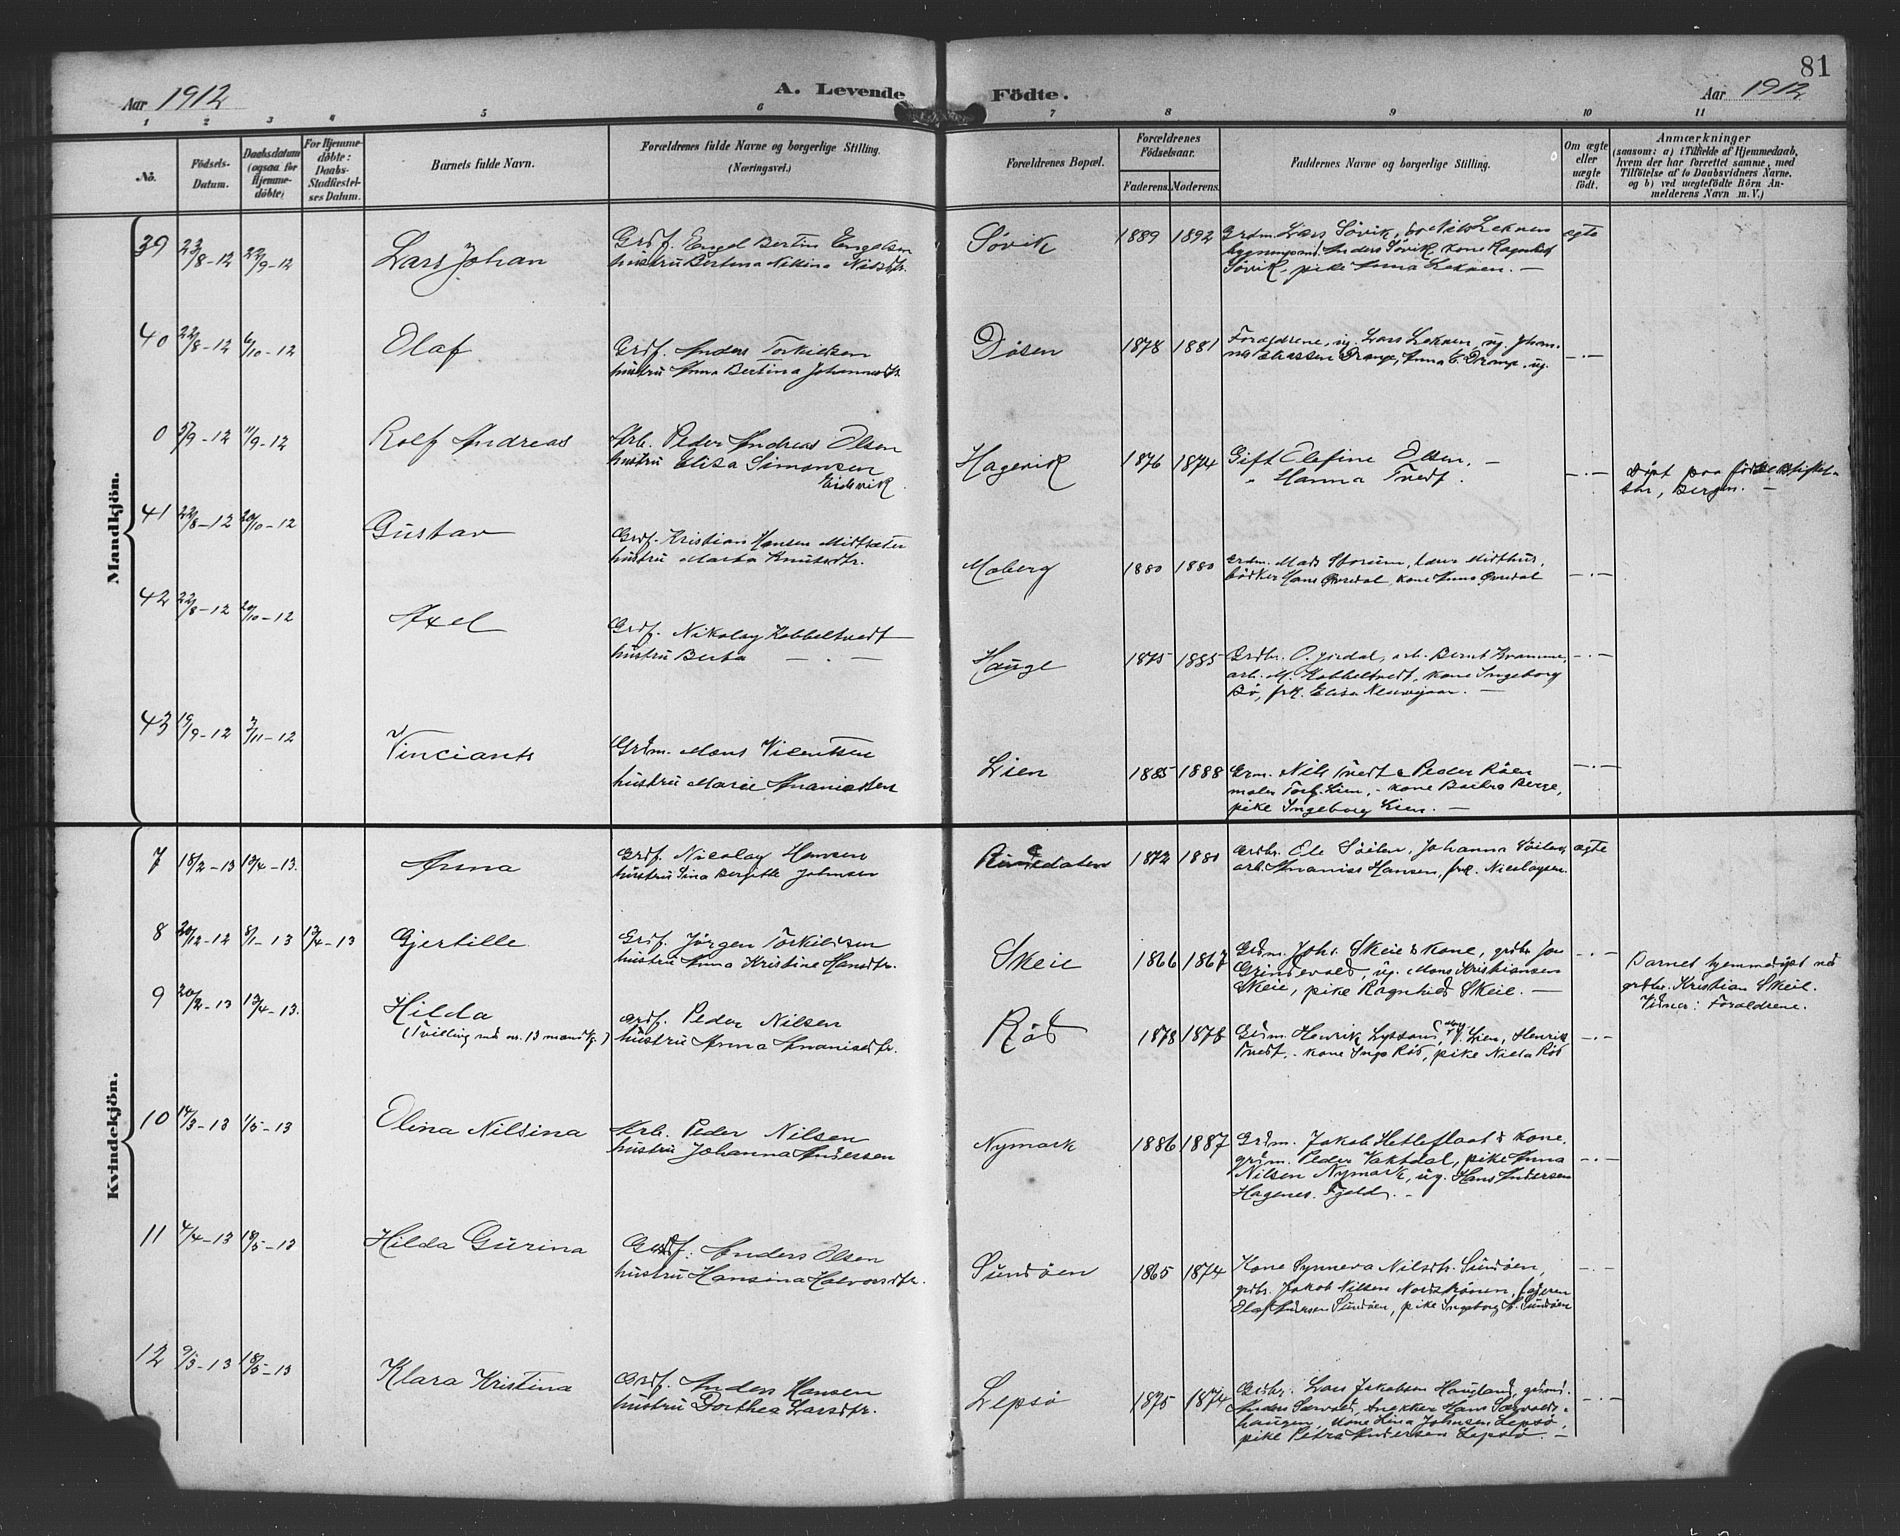 81
Aar 1912
A. Levende Födte.
Aar 1912
1 2 3 4 5 6 7 8 9 10 11
No.
Födsels-Datum.
Daabsdatum (ogsaa for Hjemme-döbte)
For Hjemme-döbte: Daabs-Stadfæstel-ses Datum.
Barnets fulde Navn.
Forældrenes fulde Navne og borgerlige Stilling. (Næringsvei.)
Forældrenes Bopæl.
Forældrenes Födselsaar.
Faderens. Moderens.
Faddernes Navne og borgerlige Stilling.
Om ægte eller uægte födt.
Anmærkninger
(saasom: a) i Tilfælde af Hjemmedaab, hvem der har forrettet samme, med Tilföielse af to Daabsvidners Navne. og b) ved uægtefödte Börn An-melderens Navn m. V.)
Mandkjön.
39 23/8-12 22/9-12 Lars Johan
Grdf. Engel Bertin Engelsen
hustru Bertina Nilsdtr.
Søvik 1889 1892
Grdm. Lars Søvik, Nils Leknes
Anders Søvik, kone Ragnhild
Søvik, pike Anna Leknes. —
ægte
40 22/8-12 6/10-12 Olaf
Grdf. Anders Torkildsen
hustru Anna Bertina Johannesdtr.
Døsen 1878 1881
Forældrene, ug. Lars Leknes, ug.
Anna
— . —
0 5/9-12 11/9-12 Rolf Andreas
Arb. Peder Andreas Olsen
hustru Elisa Simonsen
Eidevik.
Hagevik 1876 1874
Gift Olefine Olsen. —
" Hanna Tvedt.
— . —
Døpt paa fødselsstiftel-
sen, Bergen. —
41 22/8-12 20/10-12 Gustav
Grdf. Kristian Hansen Midtsæter
hustru Marta Knutsdtr.
Moberg 1880 1880
Grdm. Mads
bødker Hans Øvredal, kone Anna Øvredal
— . —
42 22/8-12 20/10-12 Axel
Grdf. Nikolay Kobbeltvedt
hustru Berta — . —
Hauge 1875 1885
Grdbr. O. arb. Bernt
arb. M. Kobbeltvedt, kone Ingeborg
Bø, frk. Elisa —
— . —
43 19/9-12 3/11-12 Vinciants
Grdm. Mons Vicentsen
hustru Marie Ananiasen
Lien 1885 1888
Grm. Nils Tvedt & Peder Röen
maler Torf. Lien, - kone Barbro Berge,
pike Ingeborg Lien. —
— . —
Kvindekjön.
7 18/2-13 13/4-13. Anna
Grdf. Nicolay Hansen
hustru Sina Bergitte Johnsen
1872 1880
Grdbr. Ole Søilen, Johanna Søilen
arb. Ananias Hansen, frk. Nicolaysen.
ægte
8 20/12-12 8/1-13 13/4-13 Gjertille
Grdf. Jörgen Torkildsen
hustru Anna Kristine Hansdtr.
Skeie 1866 1867
Grdm. Johs. Skeie & kone, grdbr.
Grindevold, ug. Mons Kristiansen
Skeie, pike Ragnhild Skeie. —
— . —
Barnet hjemmedøpt ved
grdbr. Kristian Skeie.
Vidner: Forældrene.
9 20/2-13 13/4-13. Hilda
(Tvilling med nr. 13 mandkj.)
Grdf. Peder Nilsen
hustru Anna Ananiasdtr.
Röd 1878 1878
Grdm. Henrik Lien, Henrik
Tvedt. - kone Inga Röd, pike Nilla Röd
— . —
10 14/3-13 1/5-13 Olina Nilsina
Arb. Peder Nilsen
hustru Johanna Andersen
Nymark 1886 1887
Grdm. Jakob Hetleflaat & kone.
grdm. Peder Vaktdal, pike Anna
Nilsen Nymark, ug. Hans Andersen
Hagenes. Fjeld. -
— . —
11 4/4-13 18/5-13 Hilda Gurina
Grdf. Anders Olsen
hustru Hansina Halvorsdtr.
Sundöen 1865 1874
Kone Synneva Nilsdtr. Sundöen,
grdbr. Jakob Nilsen faderen
Olaf Andersen Sundöen, pike Ingeborg A. Sundöen
— . —
12 9/3-13 18/5-13 Klara Kristina
Grdf. Anders Hansen
hustru Dorthea Larsdtr.
Lepsö 1875 1874
Grdbr. Lars Jakobsen Haugland,
Anders Særvold, snekker Hans Særvold-
haugen, kone Lina Johnsen Lepsö,
pike Petra Andersen Lepsö. —
— . —